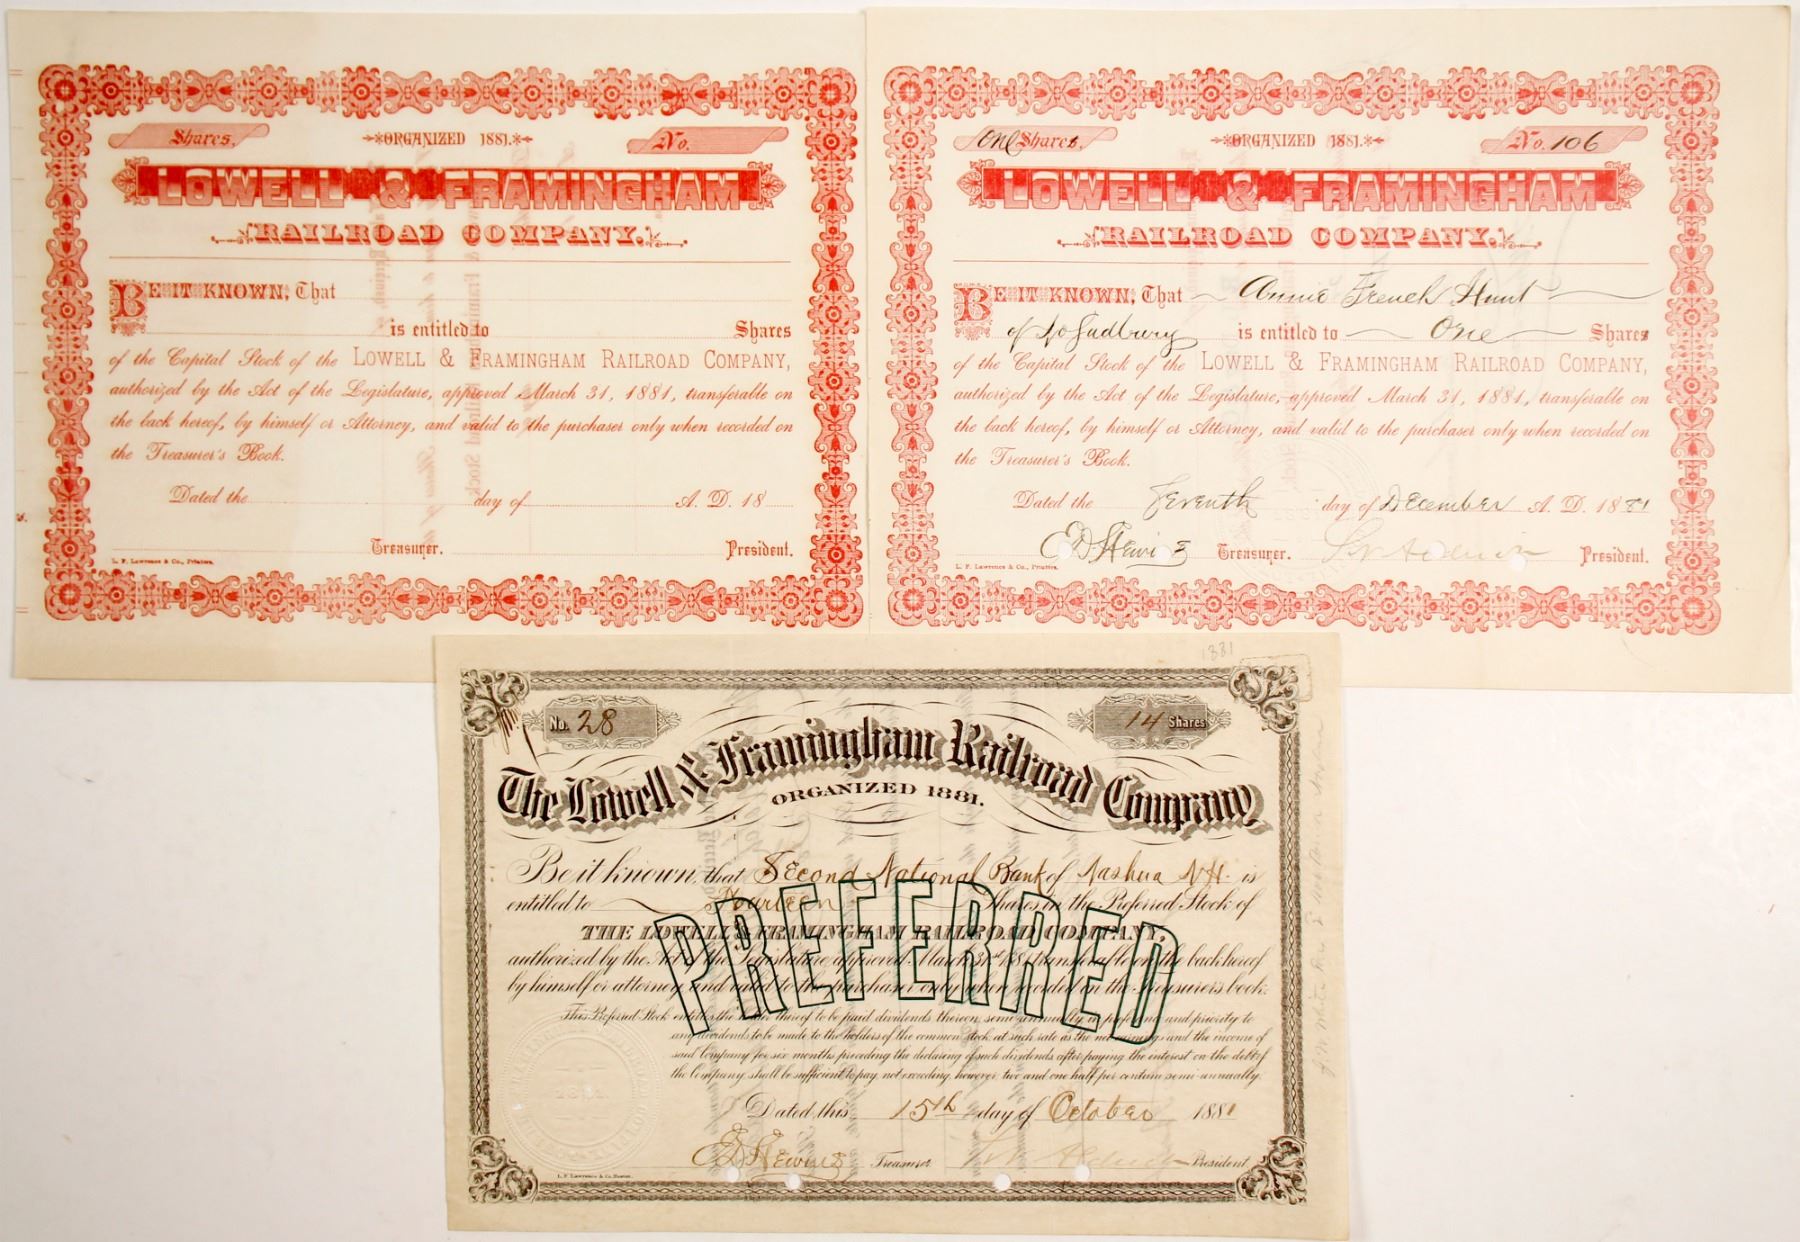 Shares,
ORGANIZED 1881.
No.
LOWELL & FRAMINGHAM
RAILROAD COMPANY.
BE IT KNOWN, That
is entitled to Shares
of the Capital Stock of the LOWELL & FRAMINGHAM RAILROAD COMPANY,
authorized by the Act of the Legislature, approved March 31, 1881, transferable on
the back hereof, by himself or Attorney, and valid to the purchaser only when recorded on
the Treasurer's Book.
Dated the day of A. D. 18
Treasurer. President.
L. F. Lawrence & Co., Printers.
One Shares,
ORGANIZED 1881.
No. 106
LOWELL & FRAMINGHAM
RAILROAD COMPANY.
BE IT KNOWN, That Annie French Hunt
of So Sudbury is entitled to One Shares
of the Capital Stock of the LOWELL & FRAMINGHAM RAILROAD COMPANY,
authorized by the Act of the Legislature, approved March 31, 1881, transferable on
the back hereof, by himself or Attorney, and valid to the purchaser only when recorded on
the Treasurer's Book.
Dated the Seventh day of December A. D. 1881
Treasurer. President.
L. F. Lawrence & Co., Printers.
1881
No. 28
14 Shares
The Lowell & Framingham Railroad Company
ORGANIZED 1881.
Be it known, that Second National Bank of Nashua N.H. is
entitled to Fourteen Shares in the Preferred Stock of
THE LOWELL & FRAMINGHAM RAILROAD COMPANY,
authorized by the Act of the Legislature, approved March 31st 1881, transferable on the back hereof
by himself or attorney, and valid to the purchaser only when recorded on the Treasurer's book.
PREFERRED
This Preferred Stock entitles the holder thereof to be paid dividends thereon, semi-annually in preference and priority to
any dividends to be made to the holders of the common stock at such rate as the net earnings and the income of
said Company for six months preceding the declaring of such dividends after paying the interest on the debt of
the Company shall be sufficient to pay, not exceeding, however, two and one half per centum semi-annually.
Dated, this 15th day of October 1881
Treasurer President
L. F. Lawrence & Co. Boston.